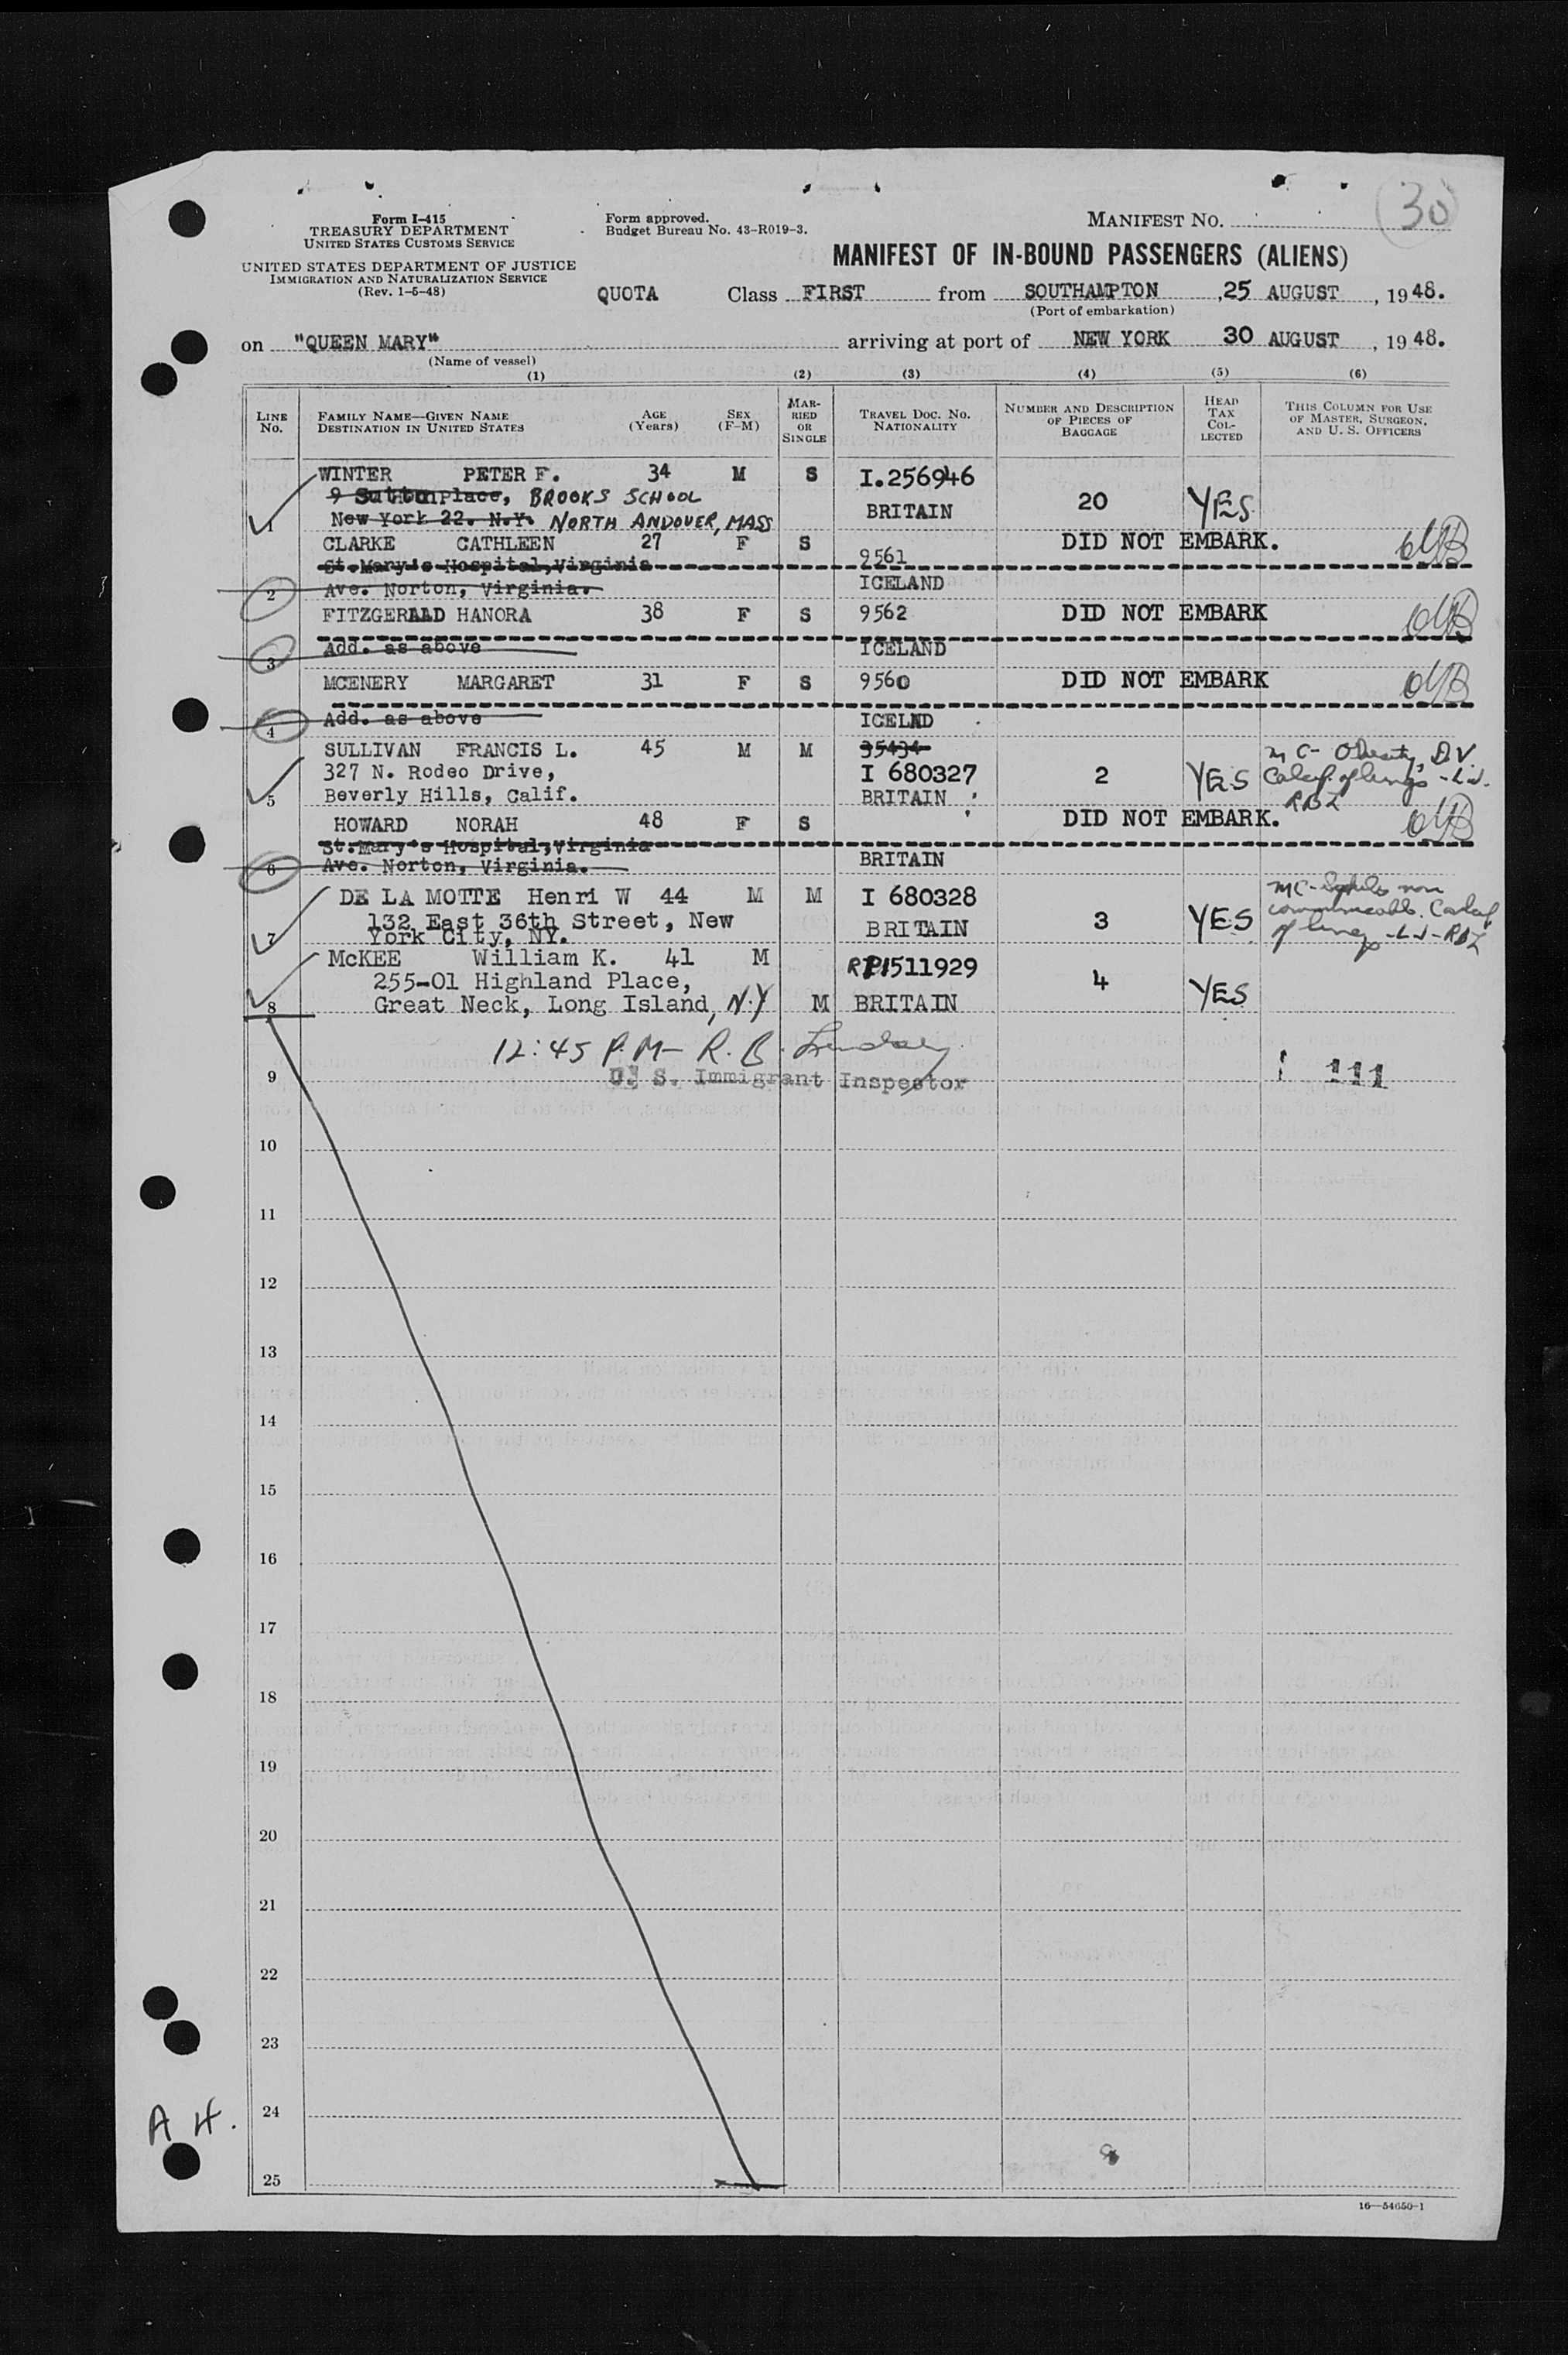 30
Form I-415
TREASURY DEPARTMENT
UNITED STATES CUSTOMS SERVICE
UNITED STATES DEPARTMENT OF JUSTICE
IMMIGRATION AND NATURALIZATION SERVICE
(Rev. 1-5-48)
Form approved.
Budget Bureau No. 43-R019-3.
MANIFEST NO.
MANIFEST OF IN-BOUND PASSENGERS (ALIENS)
QUOTA Class FIRST from SOUTHAMPTON, 25 AUGUST, 1948.
(Port of embarkation)
on "QUEEN MARY" arriving at port of NEW YORK 30 AUGUST, 1948.
(Name of vessel)
(1) (2) (3) (4) (5) (6)
LINE No. FAMILY NAME—GIVEN NAME DESTINATION IN UNITED STATES AGE (Years) SEX (F-M) MARRIED OR SINGLE TRAVEL DOC. NO. NATIONALITY NUMBER AND DESCRIPTION OF PIECES OF BAGGAGE HEAD TAX COLLECTED THIS COLUMN FOR USE OF MASTER, SURGEON, AND U. S. OFFICERS
WINTER PETER F. 34 M S I.256946
9 Sutton Place, BROOKS SCHOOL BRITAIN 20 YES
1 New York 22. N.Y. NORTH ANDOVER, MASS
CLARKE CATHLEEN 27 F S 9561 DID NOT EMBARK.
St.Mary's Hospital,Virginia
2 Ave. Norton, Virginia. ICELAND
FITZGERALD HANORA 38 F S 9562 DID NOT EMBARK
3 Add. as above ICELAND
MCENERY MARGARET 31 F S 9560 DID NOT EMBARK
4 Add. as above ICELND
SULLIVAN FRANCIS L. 45 M M 35434 MC- Obesity, D.V.
327 N. Rodeo Drive, I 680327 2 YES of lungs -
5 Beverly Hills, Calif. BRITAIN RBL
HOWARD NORAH 48 F S DID NOT EMBARK.
St.Mary's Hospital,Virginia
6 Ave. Norton, Virginia. BRITAIN
DE LA MOTTE Henri W 44 M M I 680328 MC- non
132 East 36th Street, New BRITAIN 3 YES
7 York City, NY. of lungs - RBL
McKEE William K. 41 M RP1511929
255-01 Highland Place, 4 YES
8 Great Neck, Long Island, N.Y M BRITAIN
12:45 P.M- R. B. Lindsay
9 U. S. Immigrant Inspector 111
10
11
12
13
14
15
16
17
18
19
20
21
22
23
24
A H.
25
16—54650-1